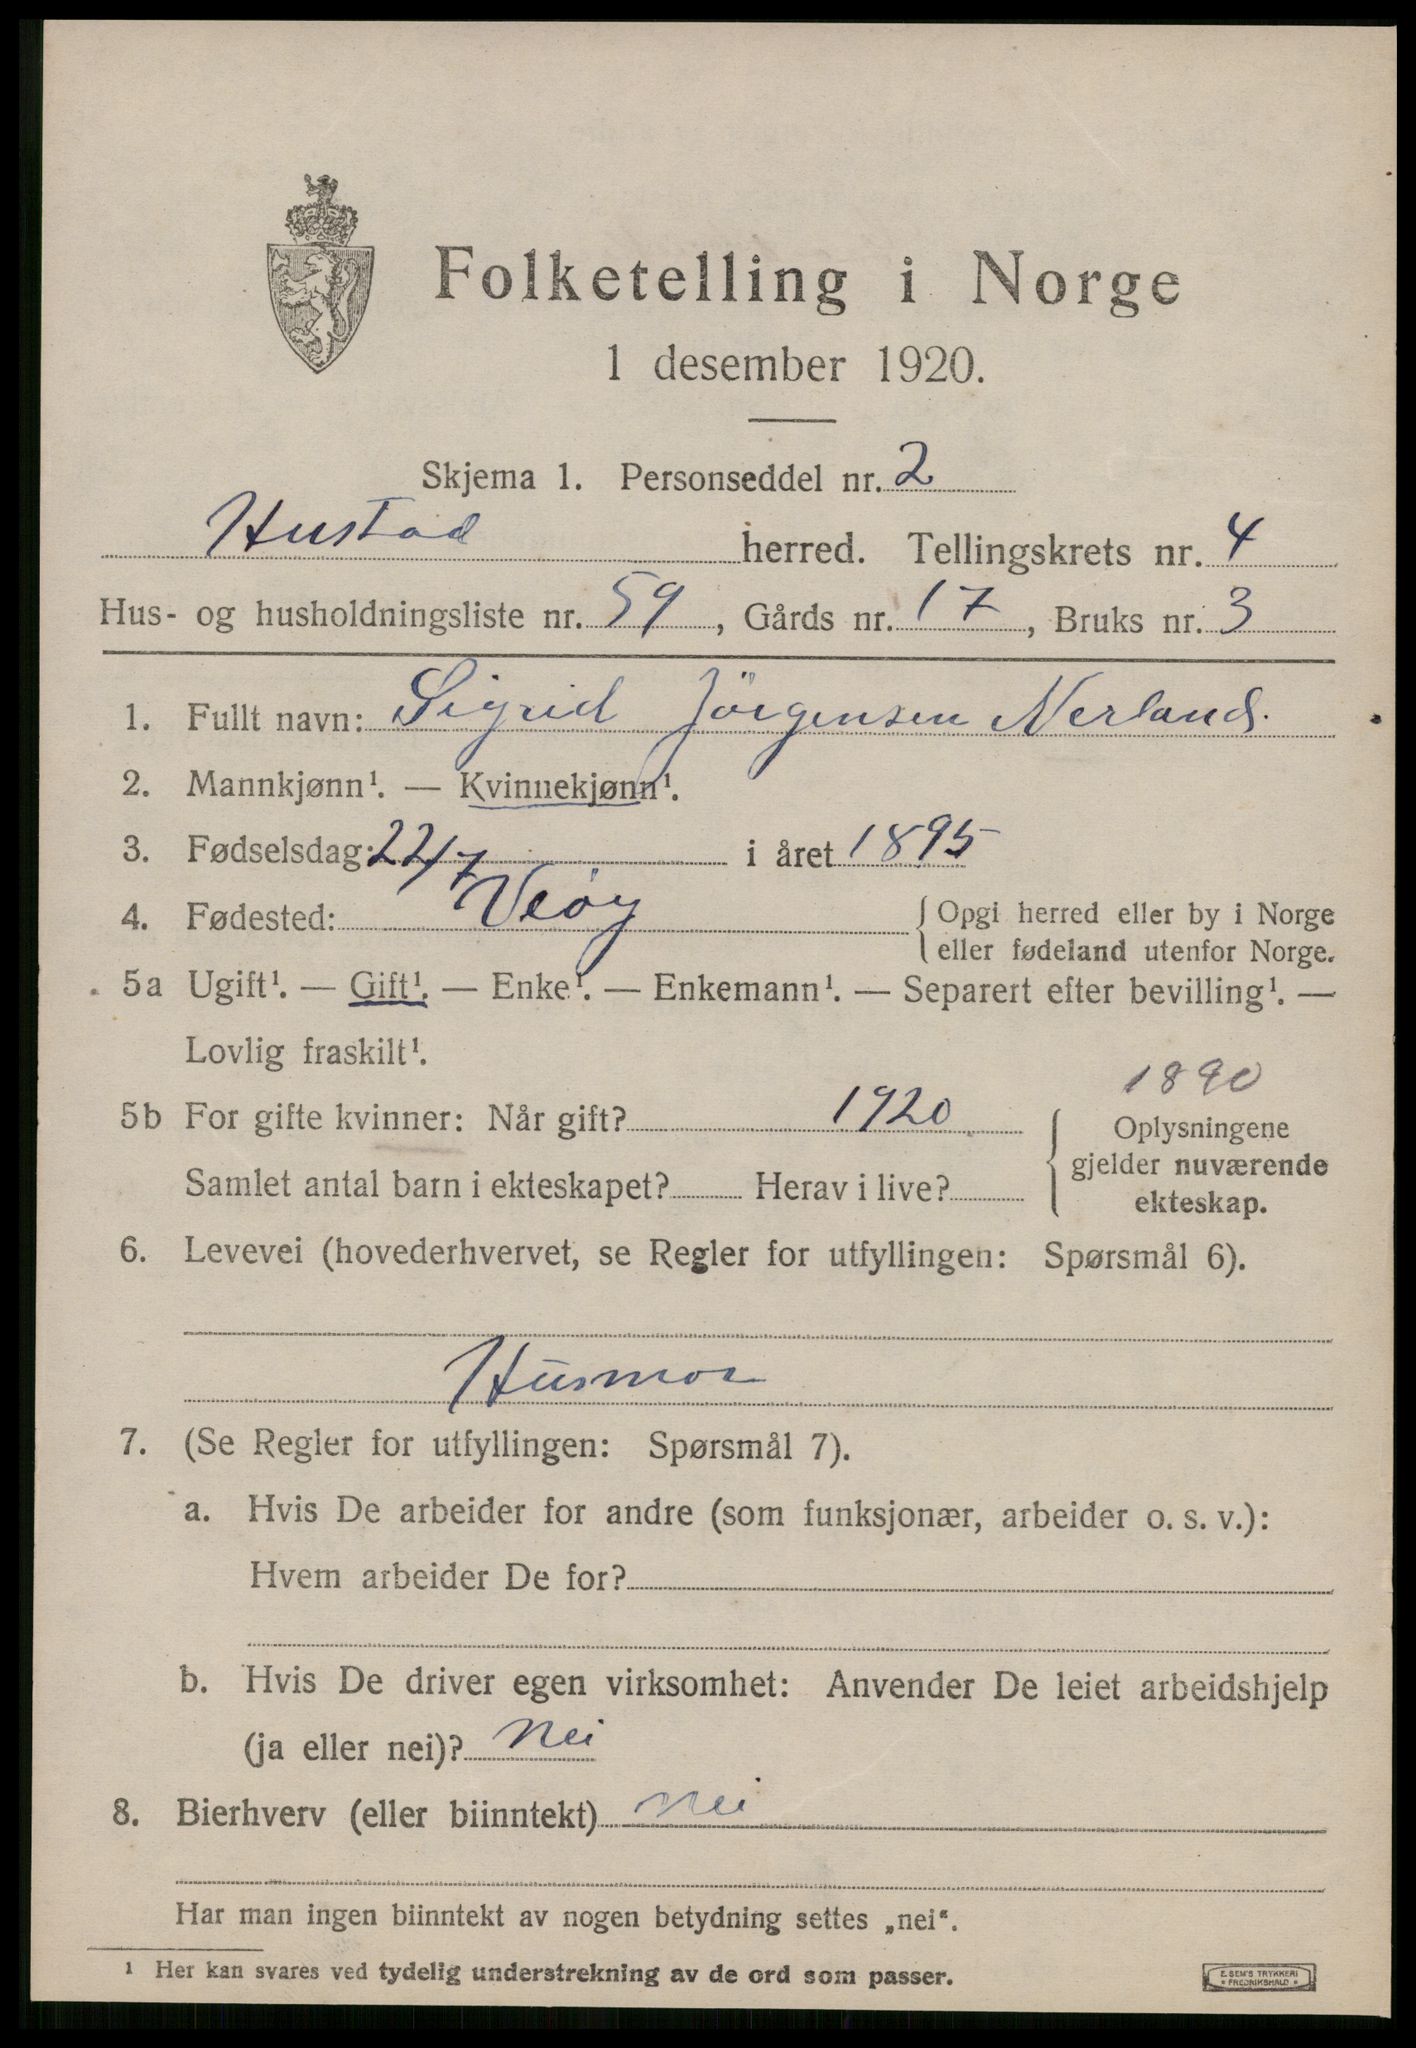 Folketelling i Norge
1 desember 1920.
Skjema 1. Personseddel nr. 2
Hustad herred. Tellingskrets nr. 4
Hus- og husholdningsliste nr. 59, Gårds nr. 17, Bruks nr. 3
1. Fullt navn: Sigrid Jörgensen Nerland.
2. Mannkjønn¹. — Kvinnekjønn¹.
3. Fødselsdag: 22/7 i året 1895
4. Fødested: Veöy { Opgi herred eller by i Norge
eller fødeland utenfor Norge.
5a Ugift¹. — Gift¹. — Enke¹. — Enkemann¹. — Separert efter bevilling¹. —
Lovlig fraskilt¹.
1890
5b For gifte kvinner: Når gift? 1920 Oplysningene
gjelder nuværende
Samlet antal barn i ekteskapet? Herav i live? ekteskap.
6. Levevei (hovederhvervet, se Regler for utfyllingen: Spørsmål 6).
Husmor
7. (Se Regler for utfyllingen: Spørsmål 7).
a. Hvis De arbeider for andre (som funksjonær, arbeider o. s. v.):
Hvem arbeider De for?
b. Hvis De driver egen virksomhet: Anvender De leiet arbeidshjelp
(ja eller nei)? Nei
8. Bierhverv (eller biinntekt) Nei
Har man ingen biinntekt av nogen betydning settes „nei“.
¹ Her kan svares ved tydelig understrekning av de ord som passer.
E. SEM'S TRYKKERI
* FREDRIKSHALD *